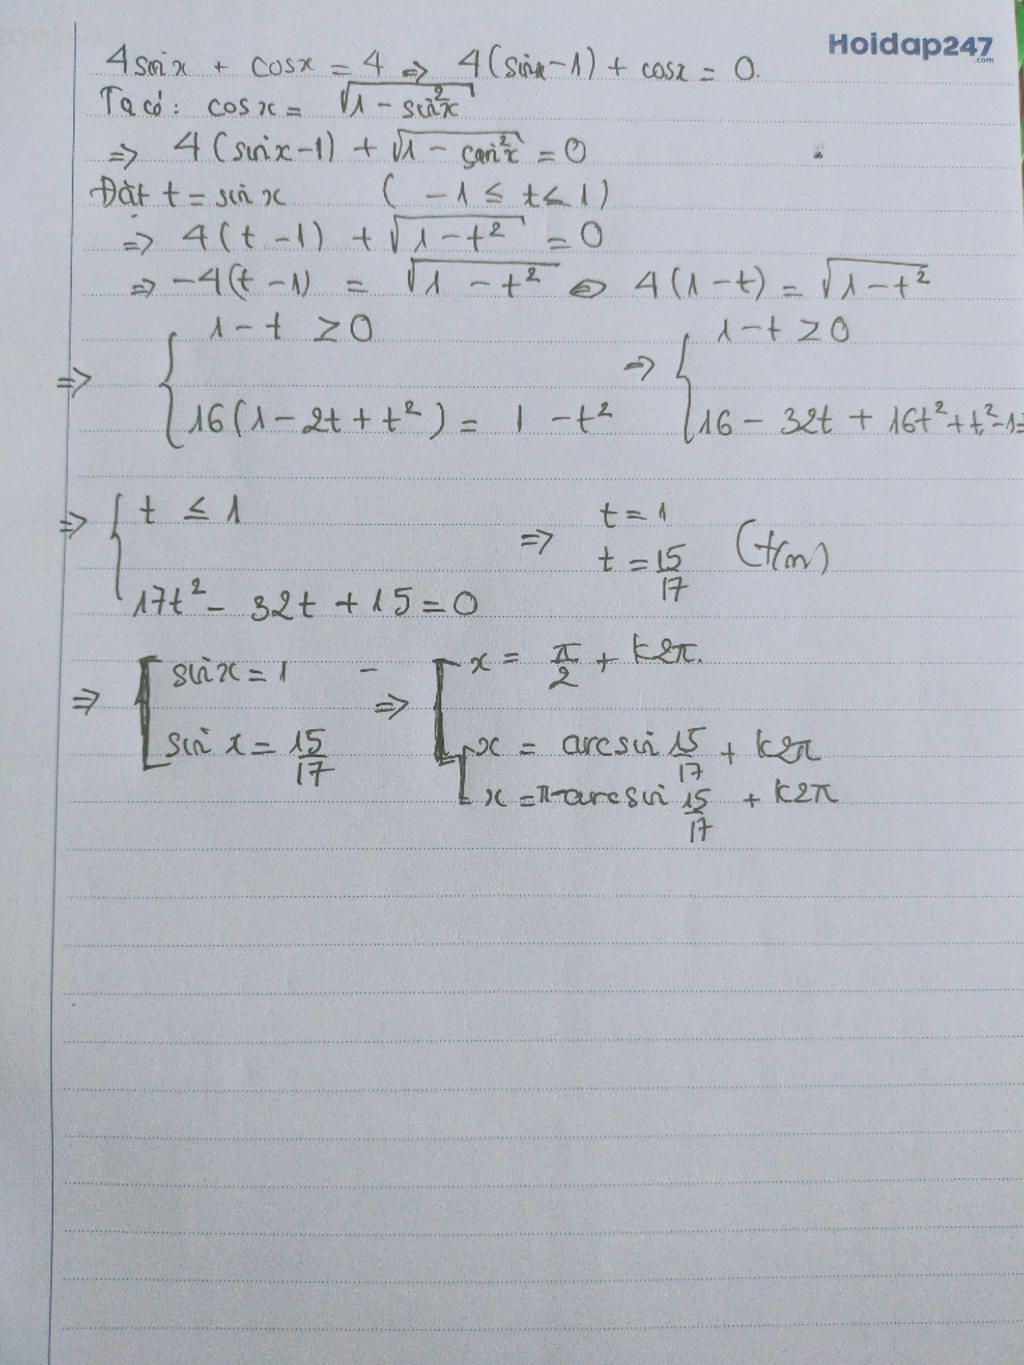 Hoidap247
.com
4sinx + cosx = 4 => 4(sinx-1) + cosx = 0.
Ta có: cosx = √1 - sin²x
=> 4(sinx-1) + √1 - sin²x = 0
Đặt t = sinx ( -1 ≤ t ≤ 1)
=> 4(t-1) + √1-t² = 0
=> -4(t-1) = √1-t² <=> 4(1-t) = √1-t²
=> { 1-t ≥ 0 => { 1-t ≥ 0
16(1-2t+t²) = 1-t² 16 - 32t + 16t²+t²-1=
=> { t ≤ 1 => t = 1
17t² - 32t + 15 = 0 t = 15/17 (t/m)
=> [ sinx = 1 - => [ x = π/2 + k2π.
sin x = 15/17 x = arcsin 15/17 + k2π
x = π-arcsin 15/17 + k2π